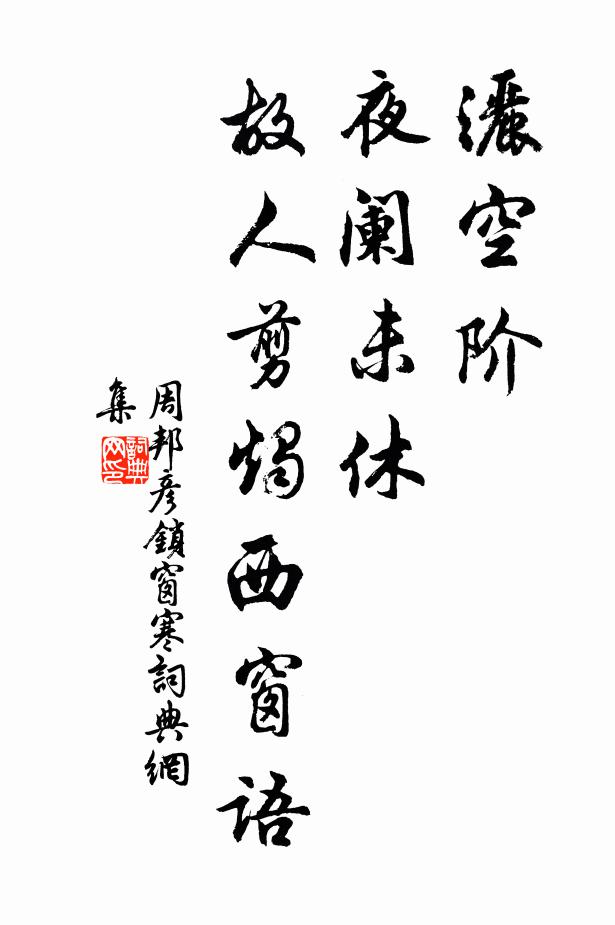 灑空阶
夜阑未休
故人剪燭西窗语
周邦彦鎖窗寒詞典網
集
詞典
网印